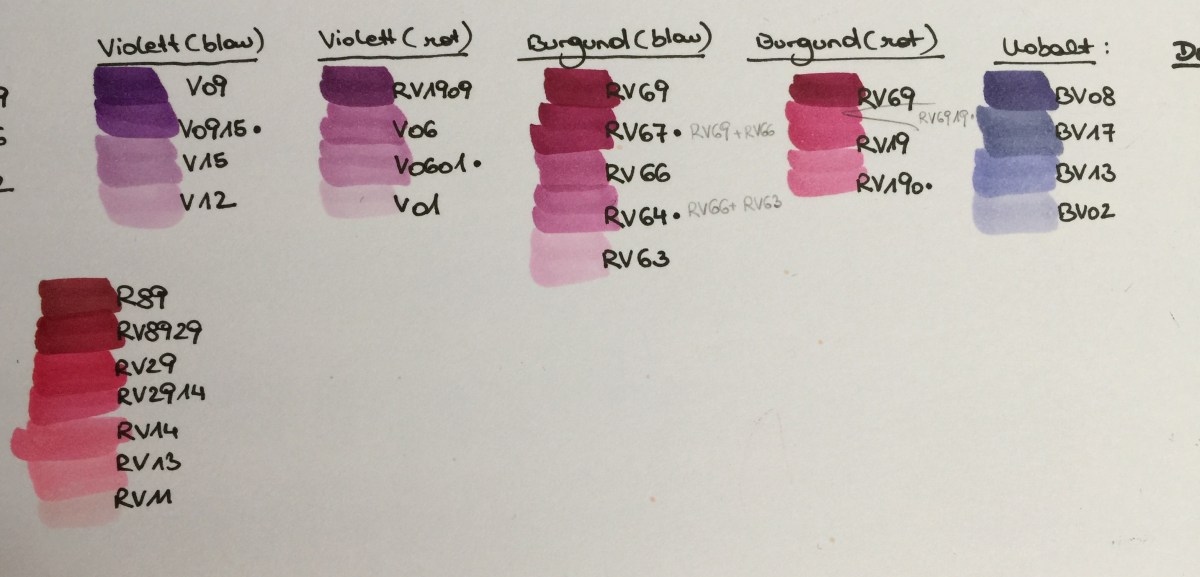 Violett (blau)
V09
V0915•
V15
V12
Violett (rot)
RV1909
V06
V0601•
V01
Burgund (blau)
RV69
RV67• RV69 + RV66
RV66
RV64• RV66 + RV63
RV63
Burgund (rot)
RV69
RV6919•
RV19
RV190•
Kobalt:
BV08
BV17
BV13
BV02
R89
RV8929
RV29
RV2914
RV14
RV13
RV11